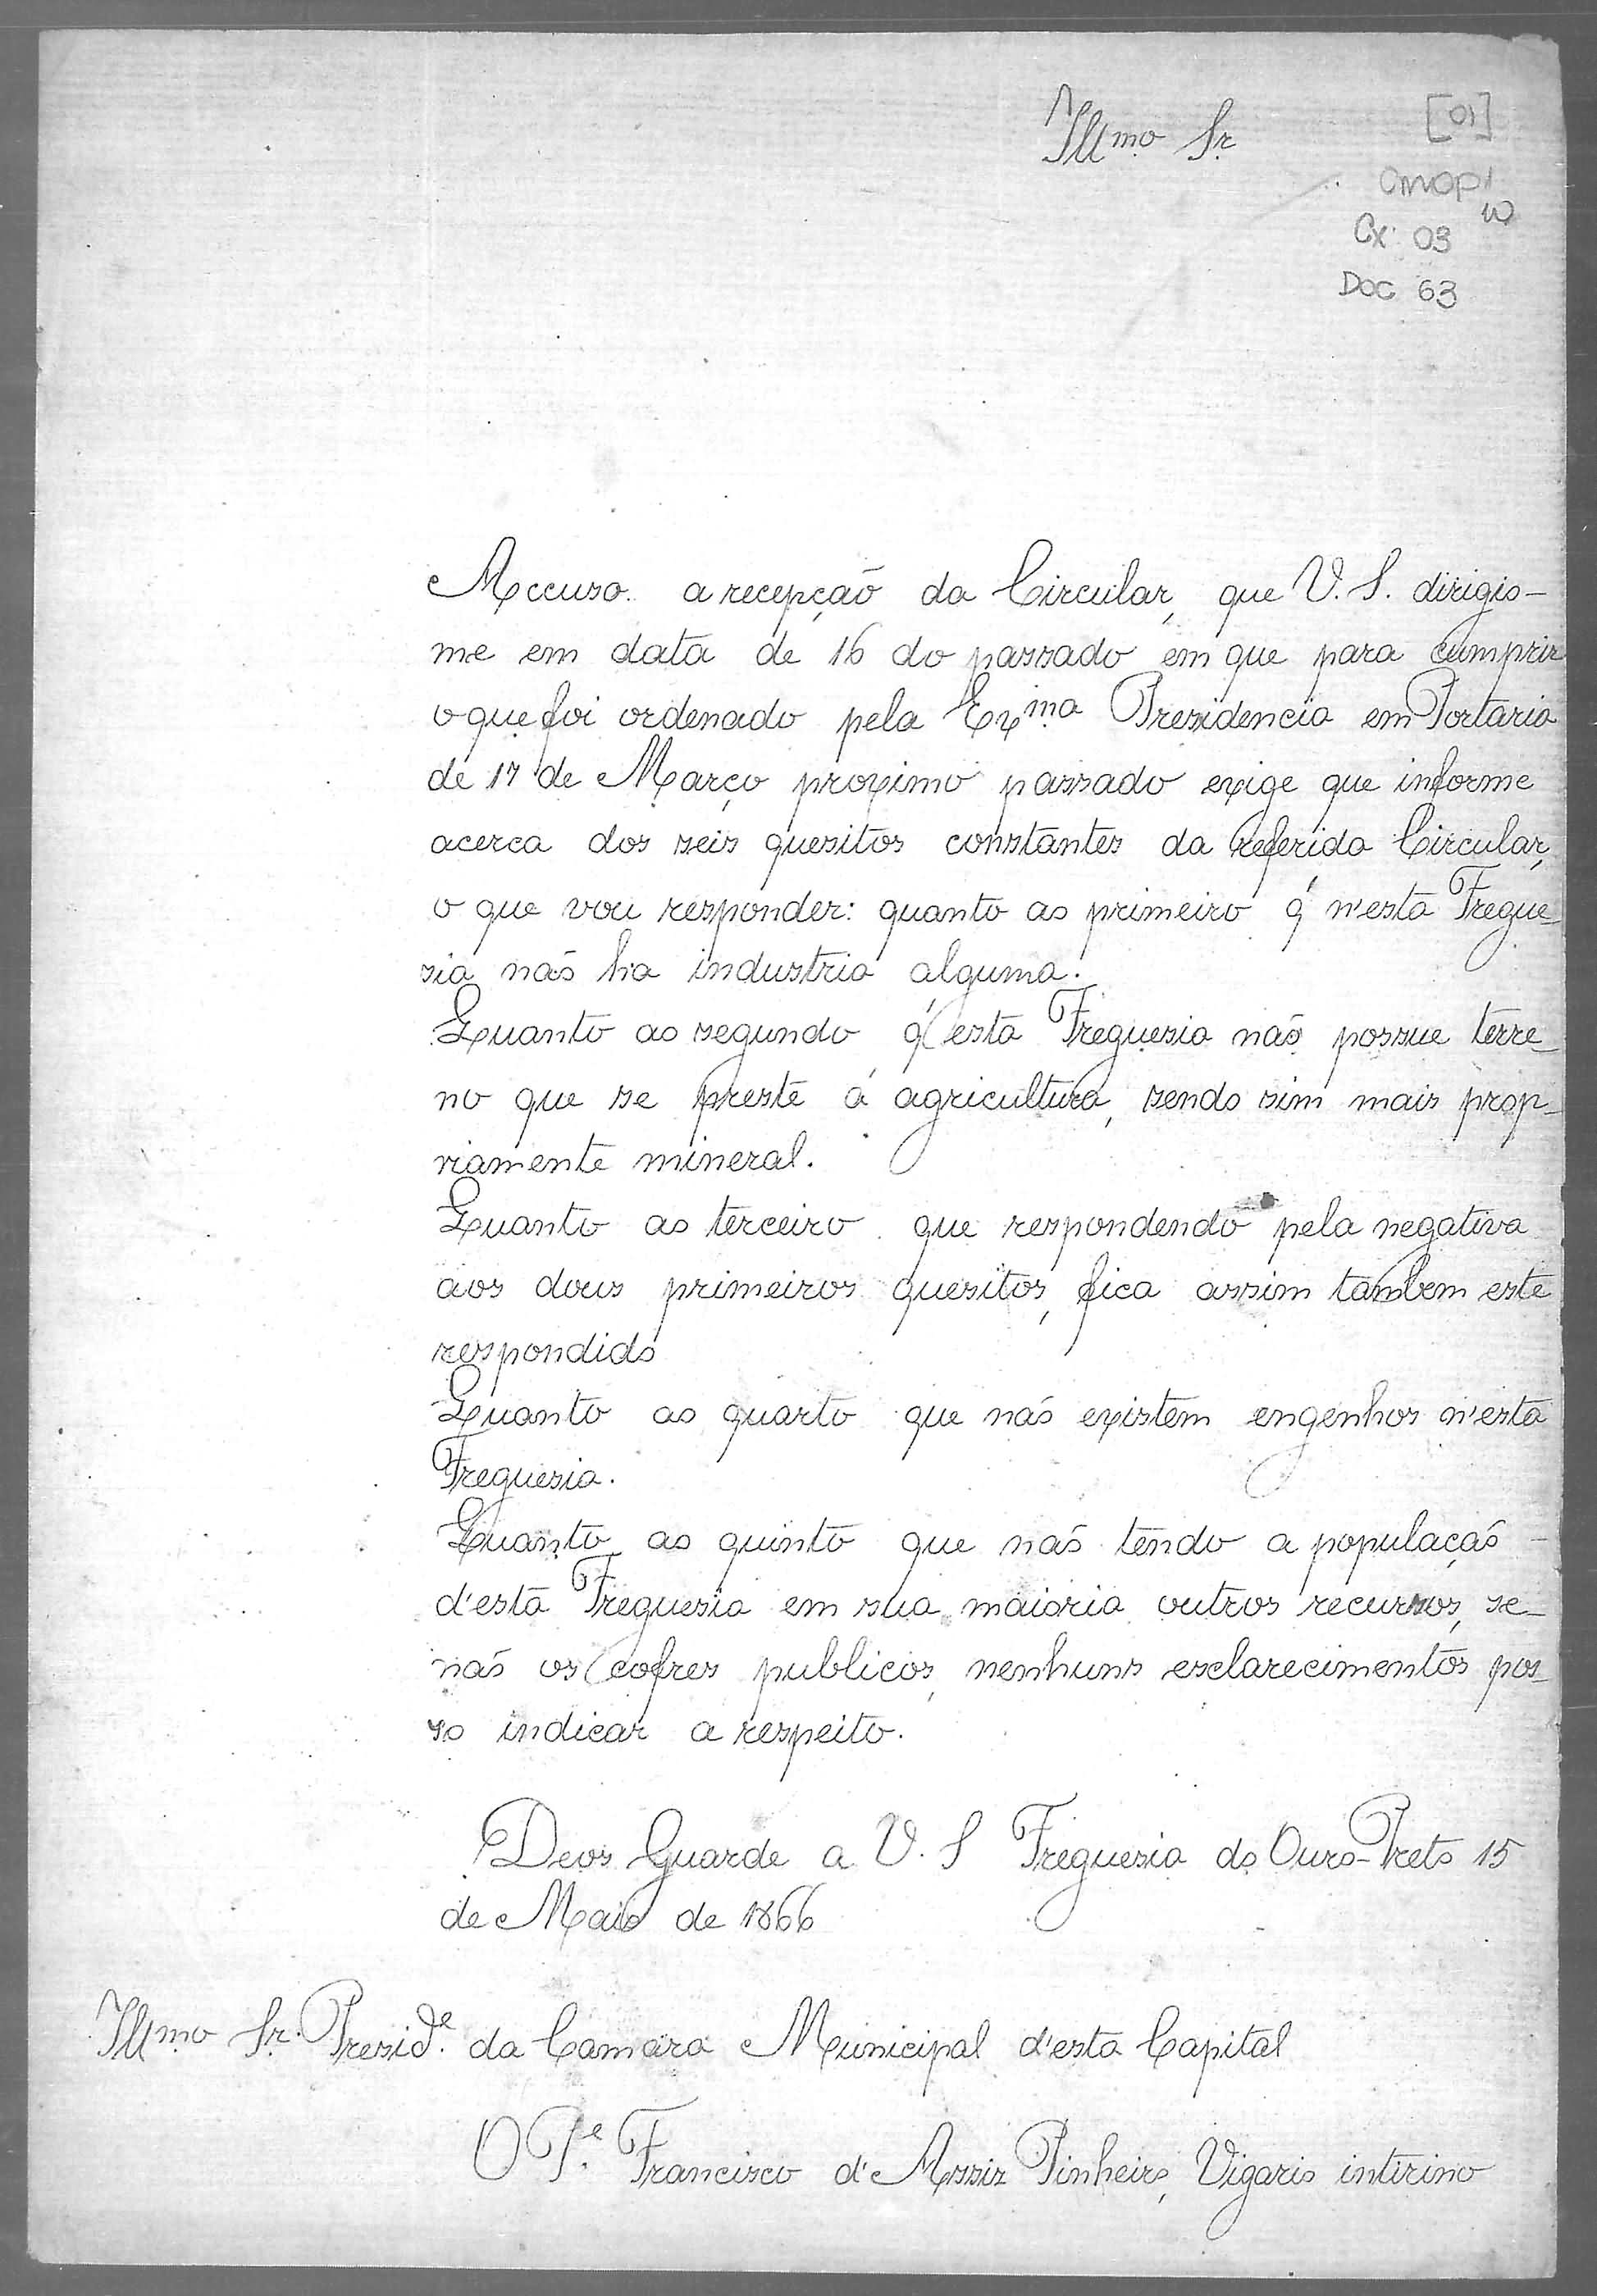 Illmo Sr
[01]
CMOP1
Cx: 03
Doc 63
Accuso a recepção da Circular, que V. S. dirigio-
me em data de 16 do passado em que para cumprir
o que foi ordenado pela Exma Presidencia em Portaria
de 17 de Março proximo passado exige que informe
acerca dos seis quesitos constantes da referida Circular,
o que vou responder: quanto ao primeiro q' n'esta Fregue-
sia não ha industria alguma.
Quanto ao segundo q' esta Freguesia não possue terre-
no que se preste á agricultura, sendo sim mais prop-
riamente mineral.
Quanto ao terceiro que respondendo pela negativa
aos dous primeiros quesitos, fica assim tambem este
respondido
Quanto ao quarto que não existem engenhos n'esta
Freguesia.
Quanto ao quinto que não tendo a população
d'esta Freguesia em sua maioria outros recursos, se-
não os cofres publicos, nenhuns esclarecimentos pos-
so indicar a respeito.
Deos Guarde a V. S Freguesia do Ouro-Preto 15
de Maio de 1866
Illmo Sr. Preside. da Camara Municipal d'esta Capital
O Pe. Francisco d'Assiz Pinheiro, Vigario intirino